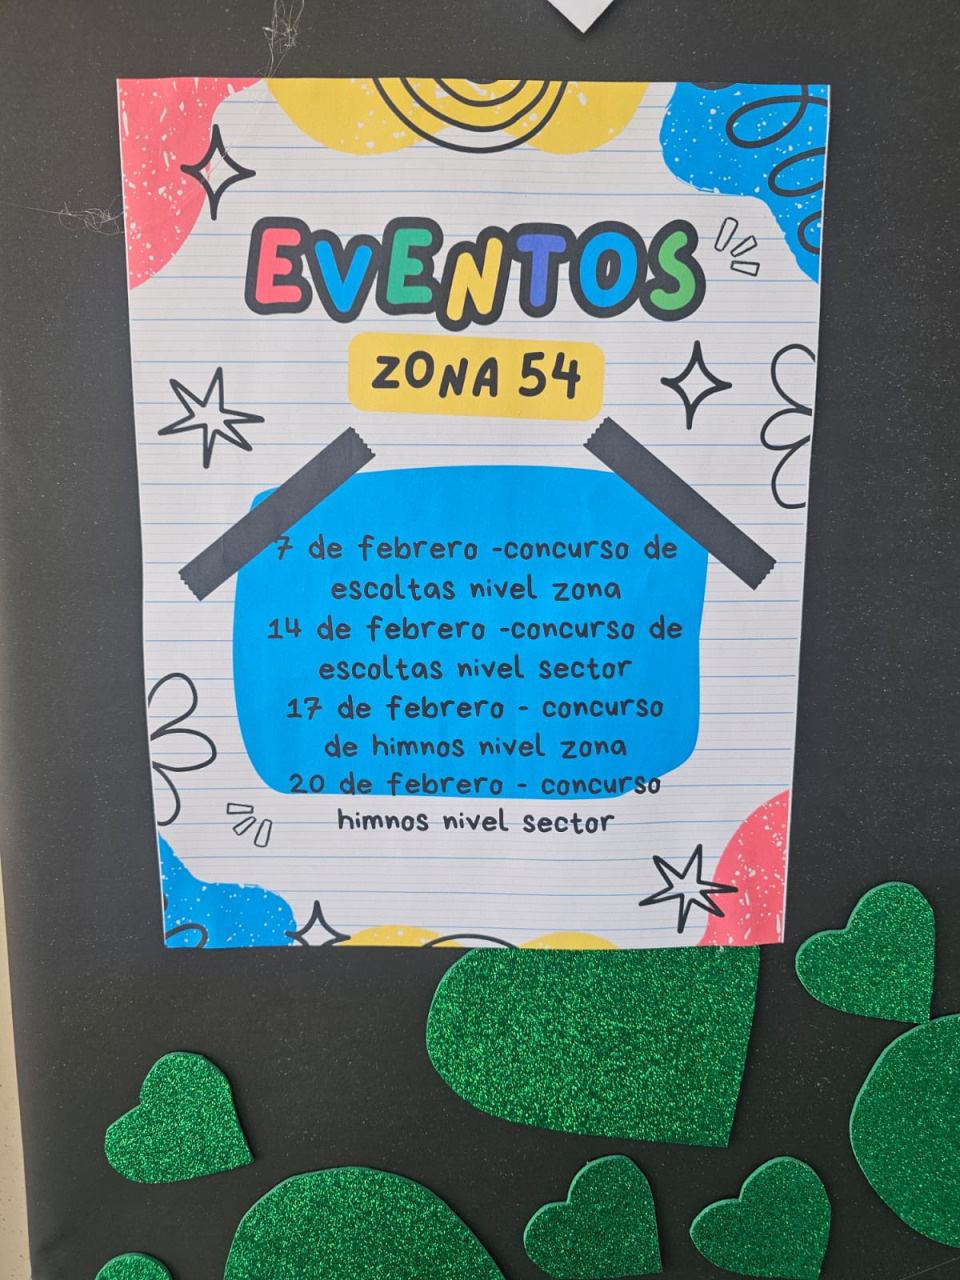 EVENTOS
ZONA 54
7 de febrero -concurso de
escoltas nivel zona
14 de febrero -concurso de
escoltas nivel sector
17 de febrero - concurso
de himnos nivel zona
20 de febrero - concurso
himnos nivel sector